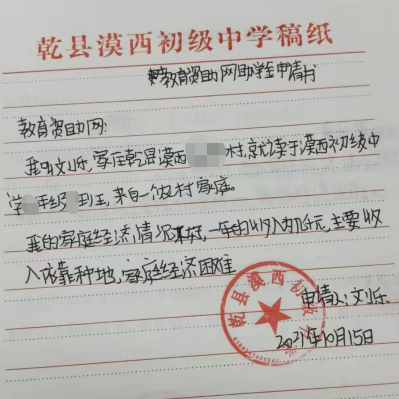 乾县漠西初级中学稿纸
教育资助网助学金申请书
教育资助网:
我叫文乐,家住乾县漠西 村,就读于漠西初级中
学 年级 班,来自一个农村家庭。
我的家庭经济情况不好,一年的收入 元,主要收
入依靠种地,家庭经济困难
申请人:文乐
2021年10月15日
乾县漠西初级中学